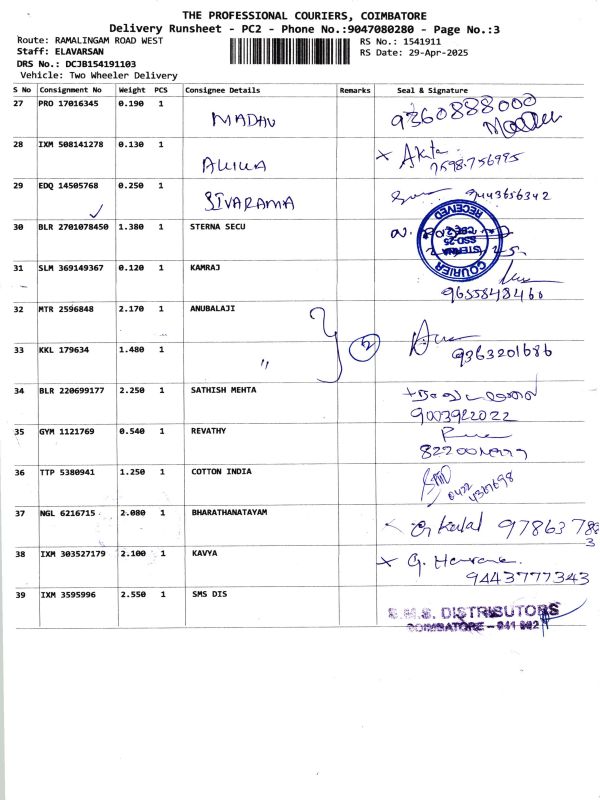 THE PROFESSIONAL COURIERS, COIMBATORE
Delivery Runsheet - PC2 - Phone No.:9047080280 - Page No.:3
Route: RAMALINGAM ROAD WEST
Staff: ELAVARSAN
DRS No.: DCJB154191103
Vehicle: Two Wheeler Delivery
RS No.: 1541911
RS Date: 29-Apr-2025
S No Consignment No Weight PCS Consignee Details Remarks Seal & Signature
27 PRO 17016345 0.190 1 MADHU 9360888000
28 IXM 508141278 0.130 1 x Akila 7598756995
29 EDQ 14505768 0.250 1 SIVARAMA 9443656342
30 BLR 2701078450 1.380 1 STERNA SECU
RECEIVED
STERNA
COURIER
31 SLM 369149367 0.120 1 KAMRAJ 9655848460
32 MTR 2596848 2.170 1 ANUBALAJI
33 KKL 179634 1.480 1 " 2 9363201686
34 BLR 220699177 2.250 1 SATHISH MEHTA 9003922022
35 GYM 1121769 0.540 1 REVATHY
36 TTP 5380941 1.250 1 COTTON INDIA 0422
37 NGL 6216715 2.080 1 BHARATHANATAYAM 97863783
38 IXM 303527179 2.100 1 KAVYA x G. 9443777343
39 IXM 3595996 2.550 1 SMS DIS S.M.S. DISTRIBUTORS
COIMBATORE - 641 002